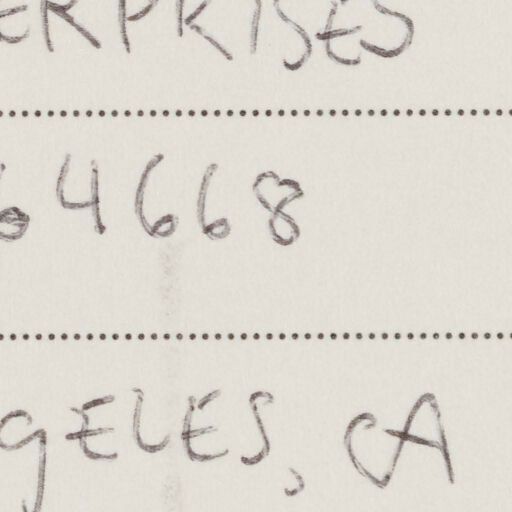 ERPRISES
64668
GELES, CA